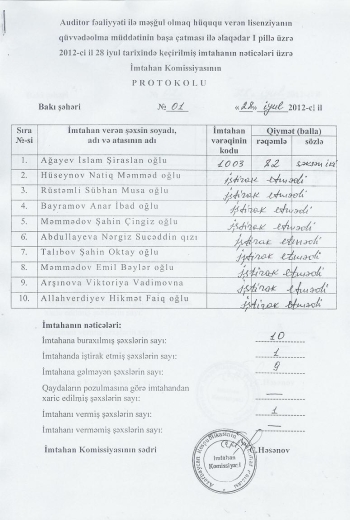 Auditor fəaliyyəti ilə məşğul olmaq hüququ verən lisenziyanın
qüvvədəolma müddətinin başa çatması ilə əlaqədar I pillə üzrə
2012-ci il 28 iyul tarixində keçirilmiş imtahanın nəticələri üzrə
İmtahan Komissiyasının
P R O T O K O L U
Bakı şəhəri № 01 «28» iyul 2012-ci il
Sıra №-si İmtahan verən şəxsin soyadı, adı və atasının adı İmtahan vərəqinin kodu Qiymət (balla) rəqəmlə sözlə
1. Ağayev İslam Şiraslan oğlu 1003 22
2. Hüseynov Natiq Məmməd oğlu iştirak etmədi
3. Rüstəmli Sübhan Musa oğlu iştirak etmədi
4. Bayramov Anar İbad oğlu iştirak etmədi
5. Məmmədov Şahin Çingiz oğlu iştirak etmədi
6. Abdullayeva Nərgiz Sucəddin qızı iştirak etmədi
7. Talıbov Şahin Oktay oğlu iştirak etmədi
8. Məmmədov Emil Bəylər oğlu iştirak etmədi
9. Arşınova Viktoriya Vadimovna iştirak etmədi
10. Allahverdiyev Hikmət Faiq oğlu iştirak etmədi
İmtahanın nəticələri:
İmtahana buraxılmış şəxslərin sayı: 10
İmtahanda iştirak etmiş şəxslərin sayı: 1
İmtahana gəlməyən şəxslərin sayı: 9
Qaydaların pozulmasına görə imtahandan
xaric edilmiş şəxslərin sayı: —
İmtahanı vermiş şəxslərin sayı: 1
İmtahanı verməmiş şəxslərin sayı: —
İmtahan Komissiyasının sədri Həsənov
İmtahan
Komissiyası